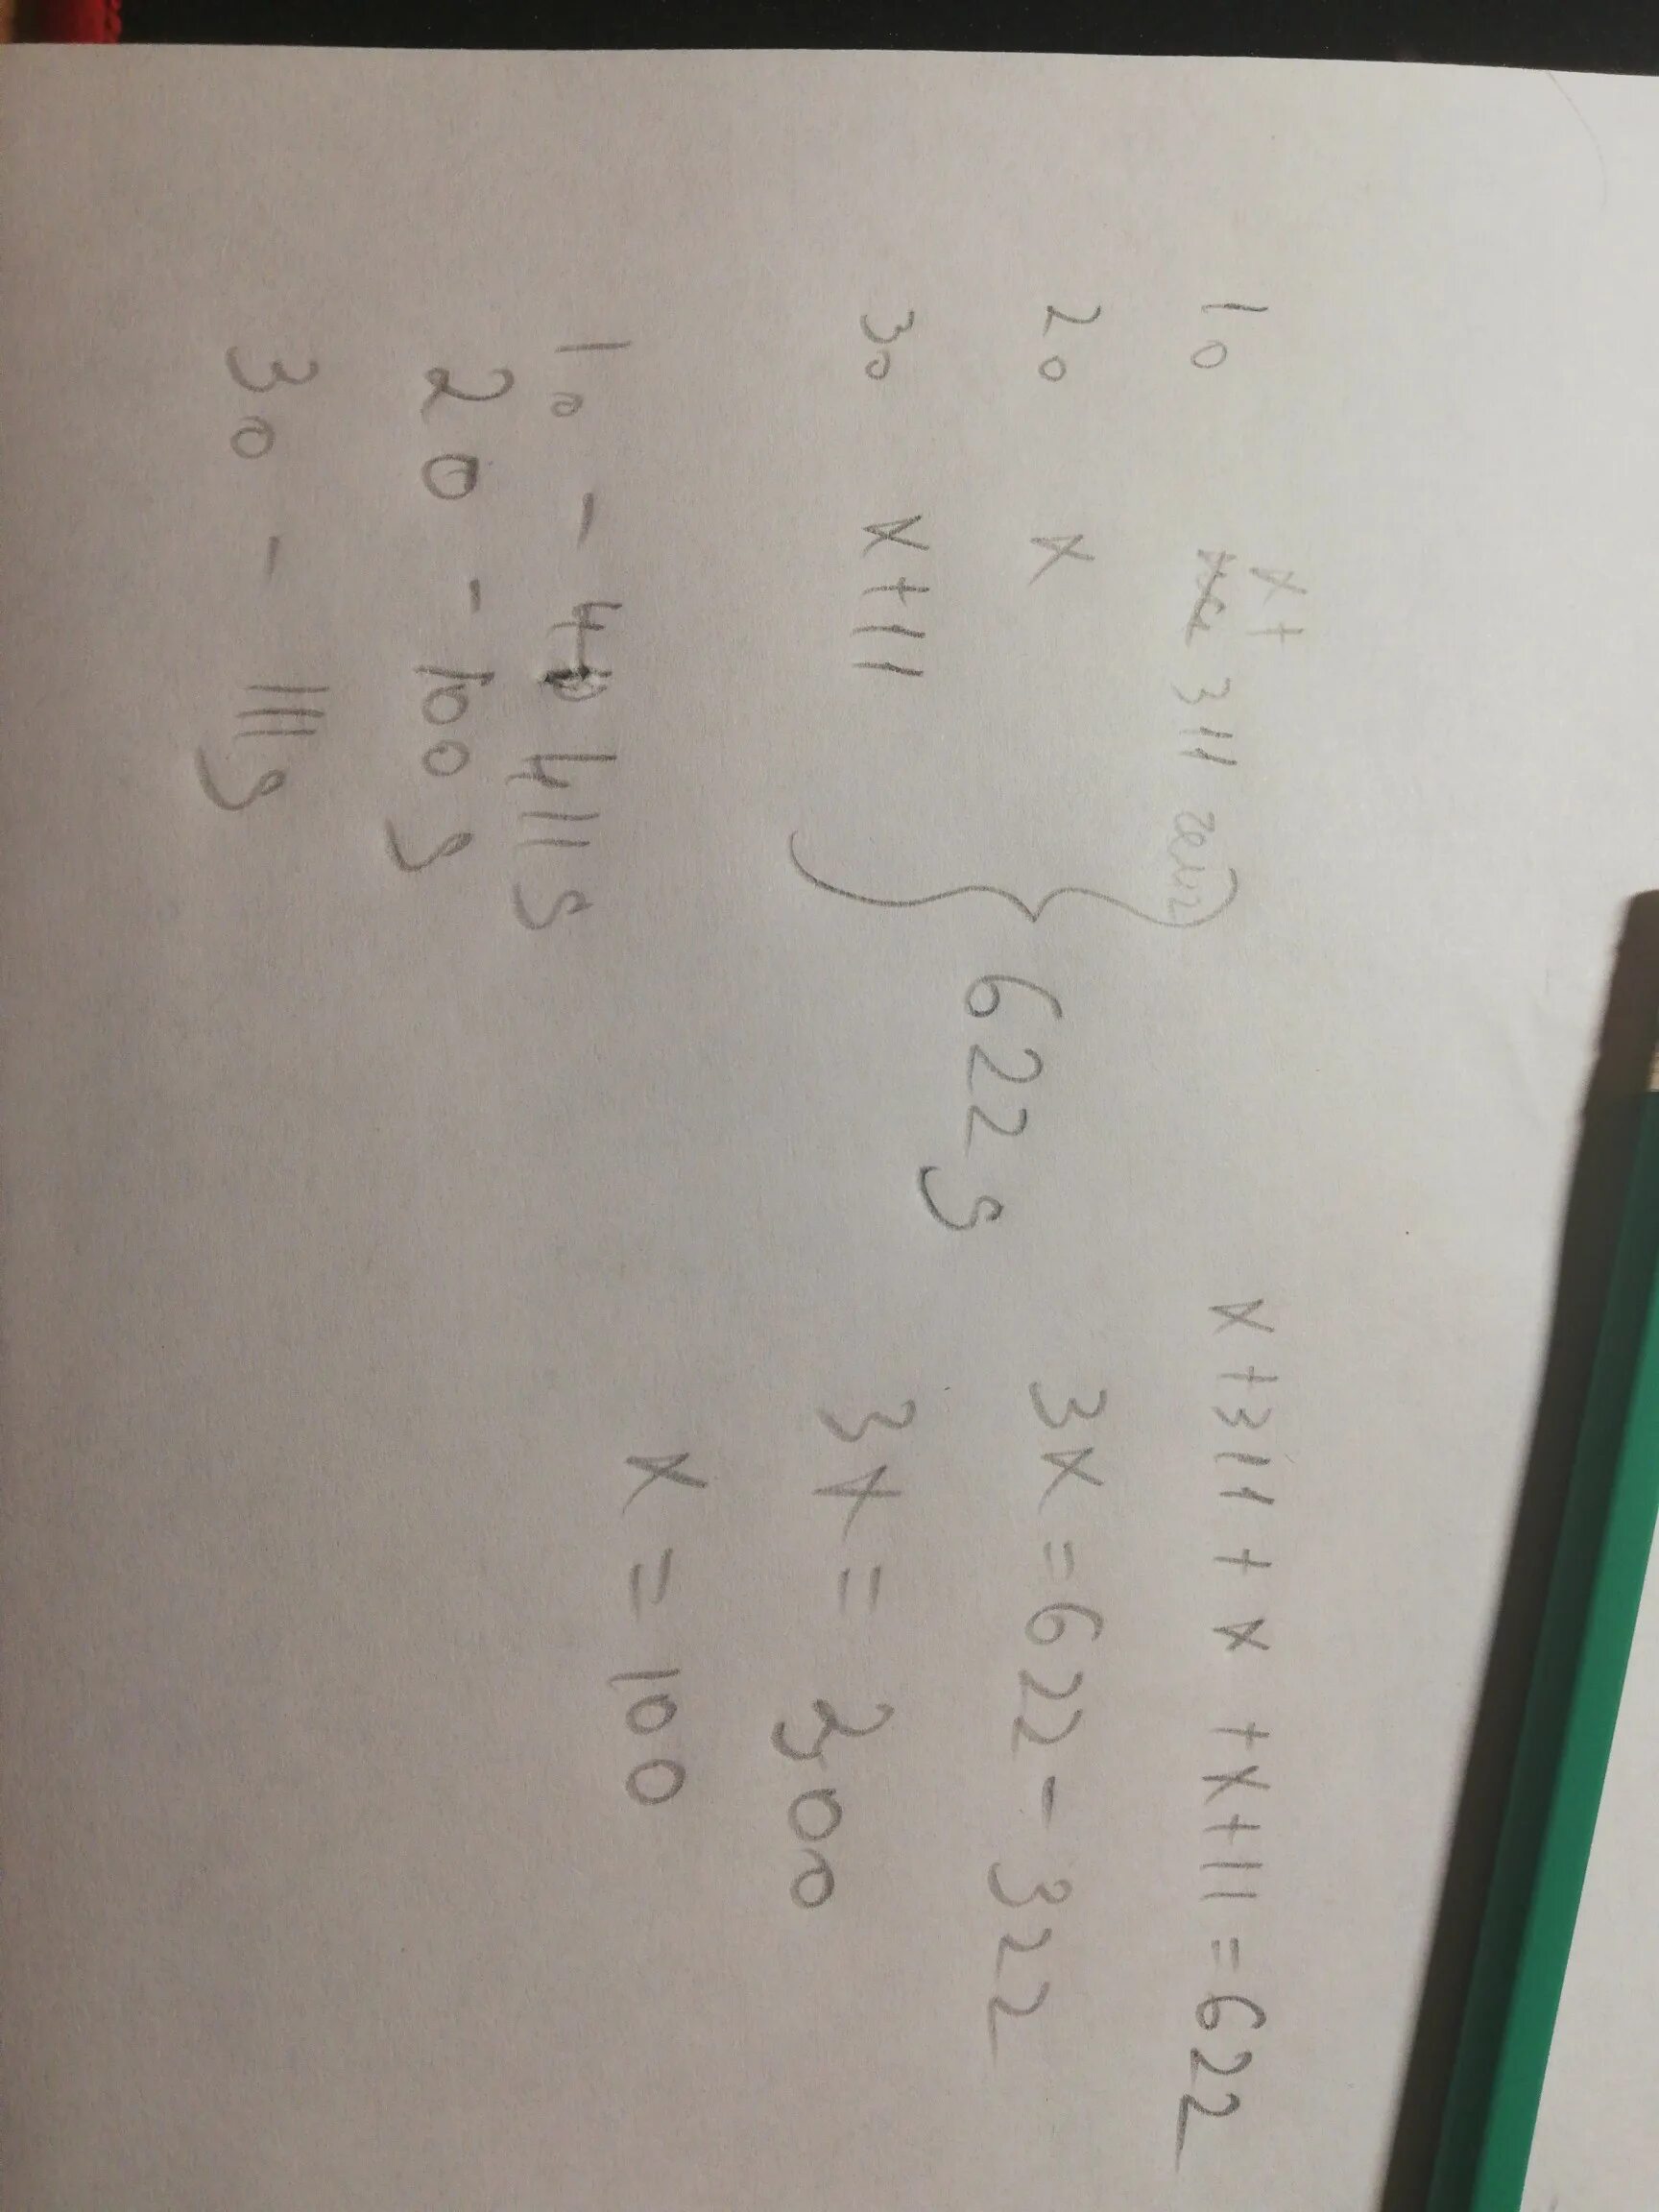 1o x+ 311
2o x
3o x+11
622 g
x+311 + x +x+11=622
3x=622-322
3x = 300
x = 100
1o - 411 g
2o - 100 g
3o - 111 g